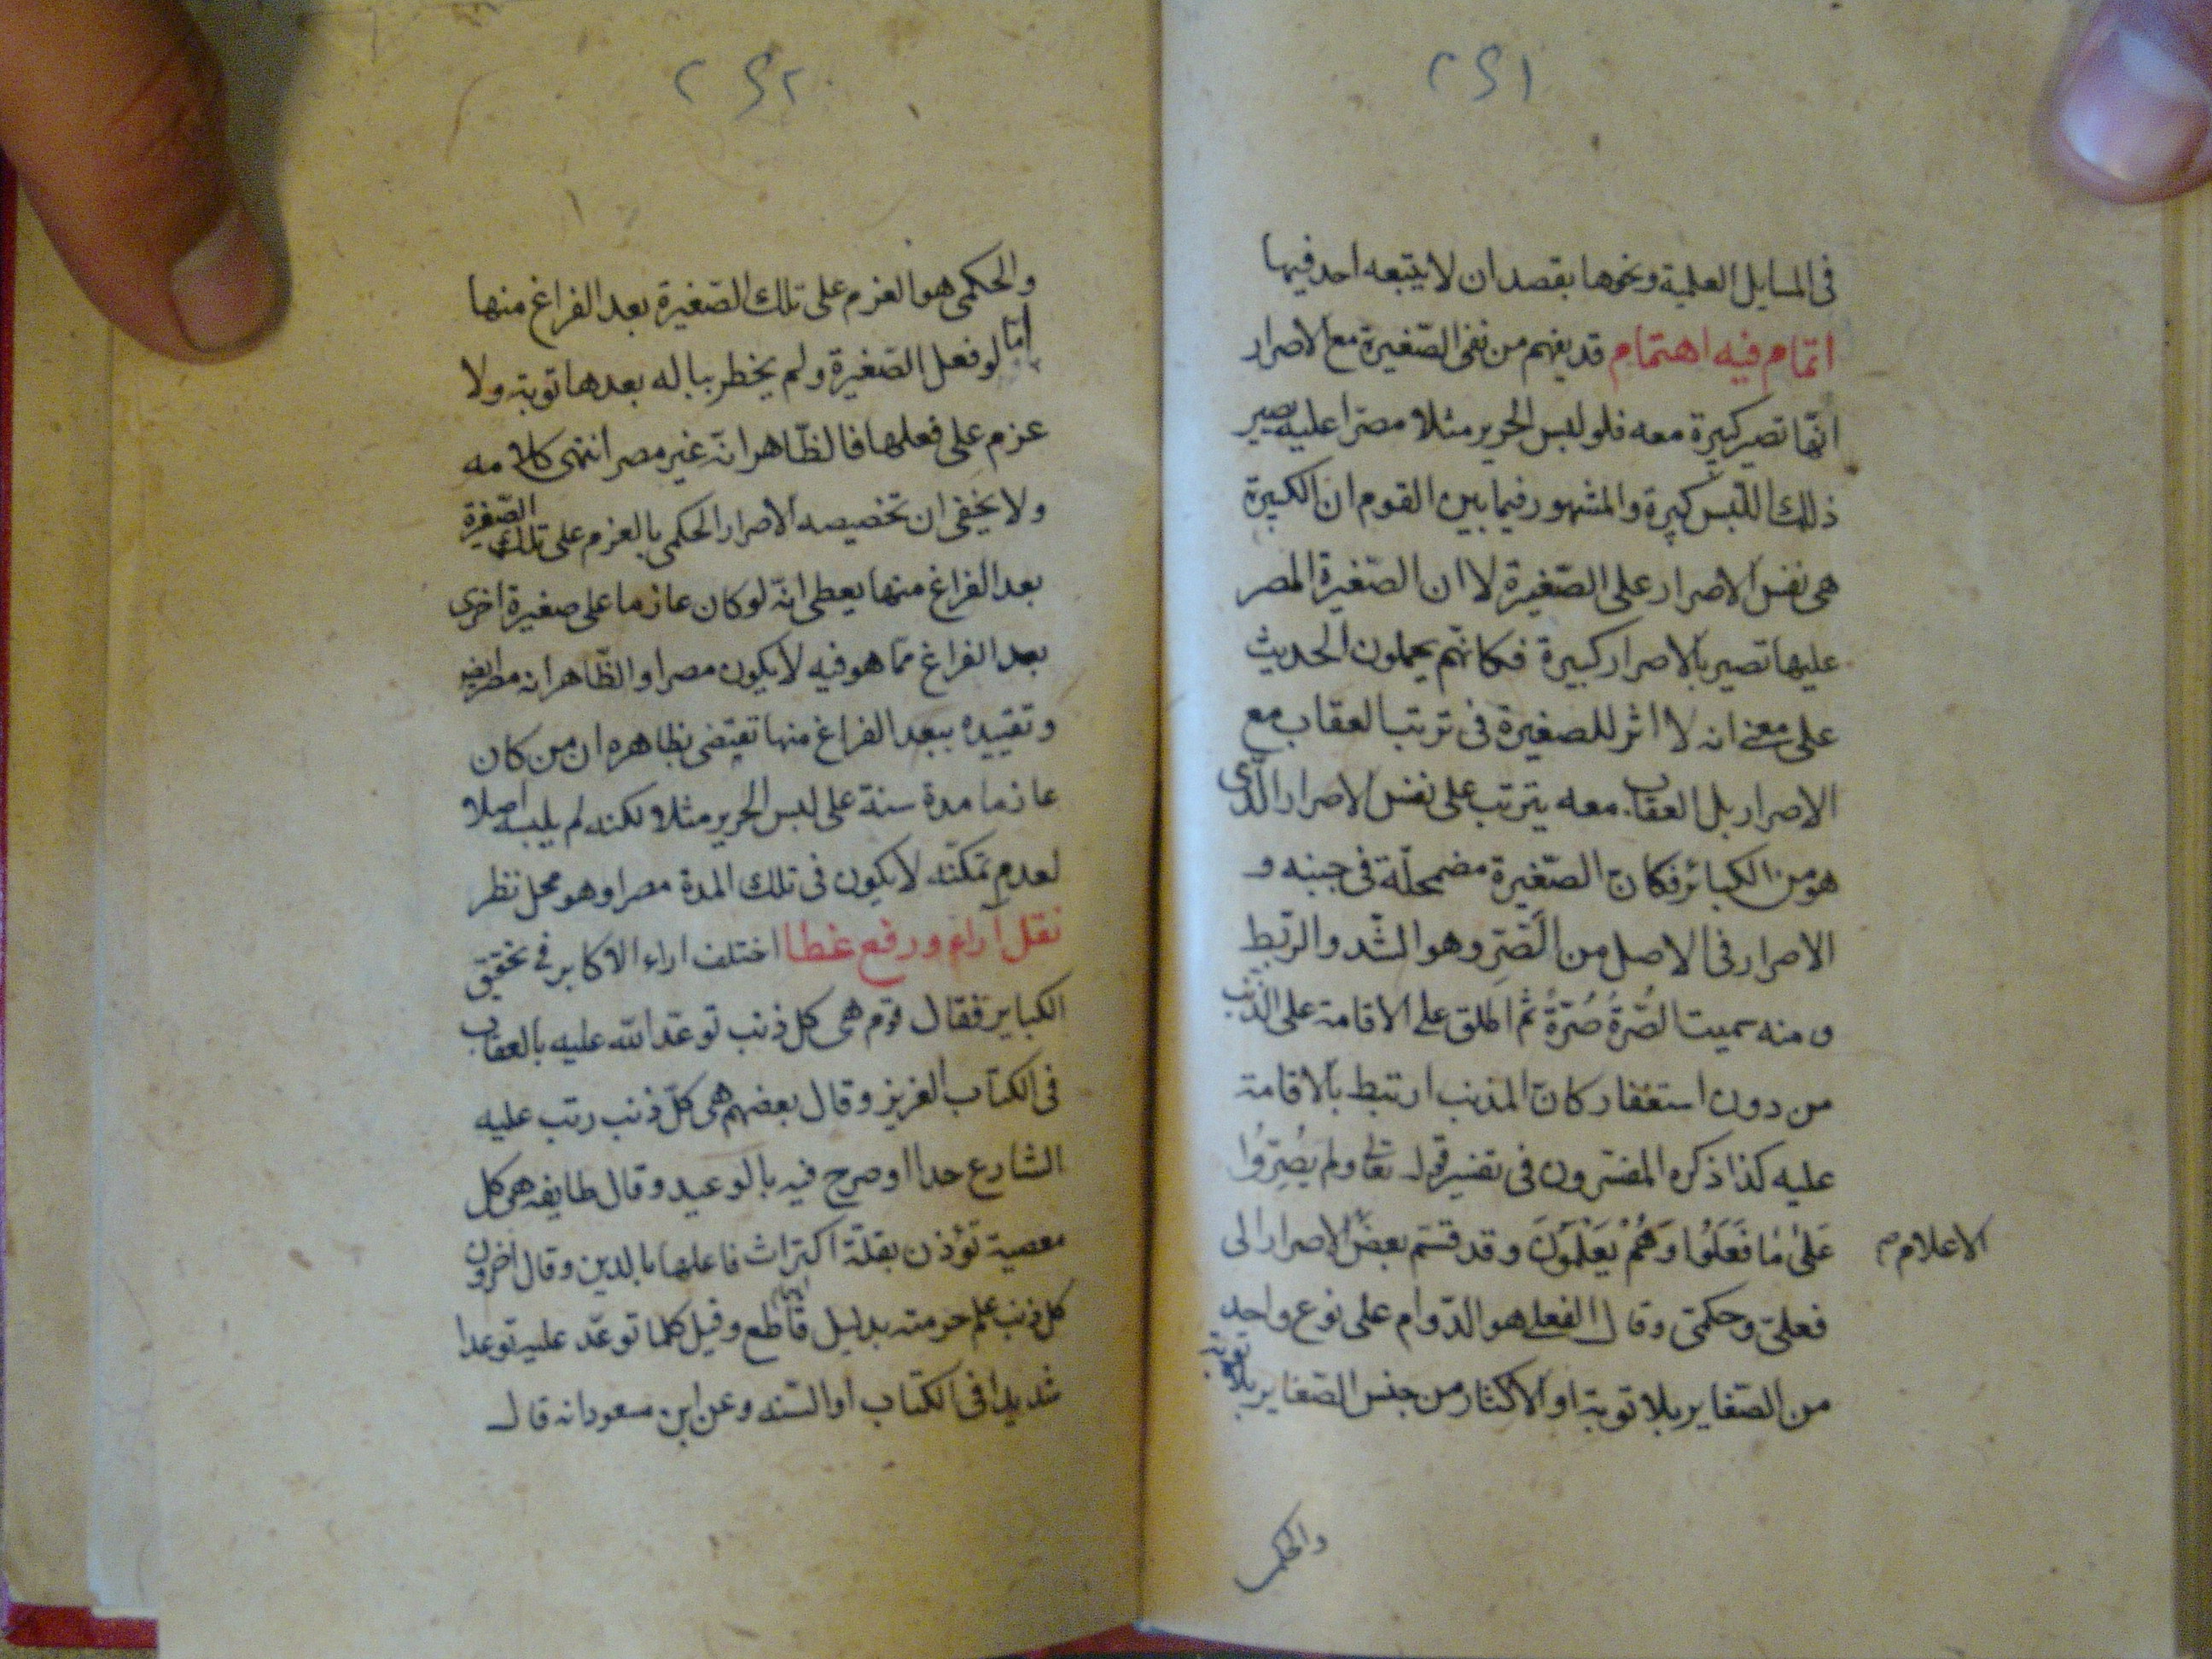 ٢٤١
فى المسايل العلمية ونحوها بقصد ان لا يتبعه احد فيها
اتمام فيه اهتمام قد يفهم من نفى الصّغيرة مع الاصرار
انّها تصير كبيرة معه فلو لبس الحرير مثلا مصرّا عليه يصير
ذلك اللّبس كبيرة والمشهور فيما بين القوم ان الكبيرة
هى نفس الاصرار على الصّغيرة لا ان الصّغيرة المصر
عليها تصير بالاصرار كبيرة فكانّهم يحملون الحديث
على معنى انه لا اثر للصغيرة فى ترتب العقاب مع
الاصرار بل العقاب معه يترتب على نفس الاصرار الّذى
هو من الكبائر فكانّ الصّغيرة مضمحلّة فى جنبه و
الاصرار فى الاصل من الصّرّ وهو الشّد والرّبط
ومنه سميت الصُّرةُ صُرّةً ثم اطلق على الاقامة على الذّنب
من دون استغفار كانّ المذنب ارتبط بالاقامة
عليه كذا ذكره المفسّرون فى تفسير قوله تعالى ولم يُصِرّوُا
عَلىٰ مٰا فَعَلوُا وَهُمْ يَعْلَمُونَ وقد قسّم بعض الاصرار الى
الاعلام م
فعلىّ وحكمىّ وقال الفعلى هو الدّوام على نوع واحد
من الصّغاير بلا توبة او الاكثار من جنس الصّغاير بلا توبة
والحكمى
٢٤٢
والحكمى هو العزم على تلك الصّغيرة بعد الفراغ منها
امّا لو فعل الصّغيرة ولم يخطر بباله بعدها توبة ولا
عزم على فعلها فالظّاهر انّه غير مصر انتهى كلامه
ولا يخفى ان تخصيصه الاصرار الحكمى بالعزم على تلك الصّغيرة
بعد الفراغ منها يعطى انّه لو كان عازما على صغيرة اخرى
بعد الفراغ ممّا هو فيه لا يكون مصرا والظّاهر انه مصر ايضا
وتقييده ببعد الفراغ منها تقيتضى بظاهره ان من كان
عازما مدة سنة على لبس الحرير مثلا لكنه لم يلبسه اصلا
لعدم تمكنّه لا يكون فى تلك المدة مصرا وهو محل نظر
نقل آراء ورفع غطا اختلف اراء الاكابر فى تحقيق
الكباير فقال قوم هى كل ذنب توعّد الله عليه بالعقاب
فى الكتاب العزيز وقال بعضهم هى كلّ ذنب رتب عليه
الشارع حدا او صرح فيه بالوعيد وقال طايفه هى كل
معصية تؤذن بقلّة اكتراث فاعلها بالدين وقال اخرون
كل ذنب علم حرمته بدليل قاطع وقيل كلما توعّد عليه توعدا
شديدا فى الكتاب او السّنه وعن ابن مسعود انه قال